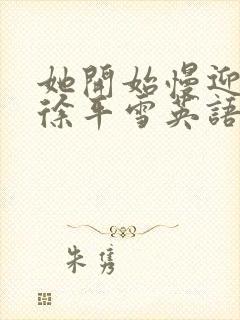 她開始慢迎
徐平雪英語
朱雋